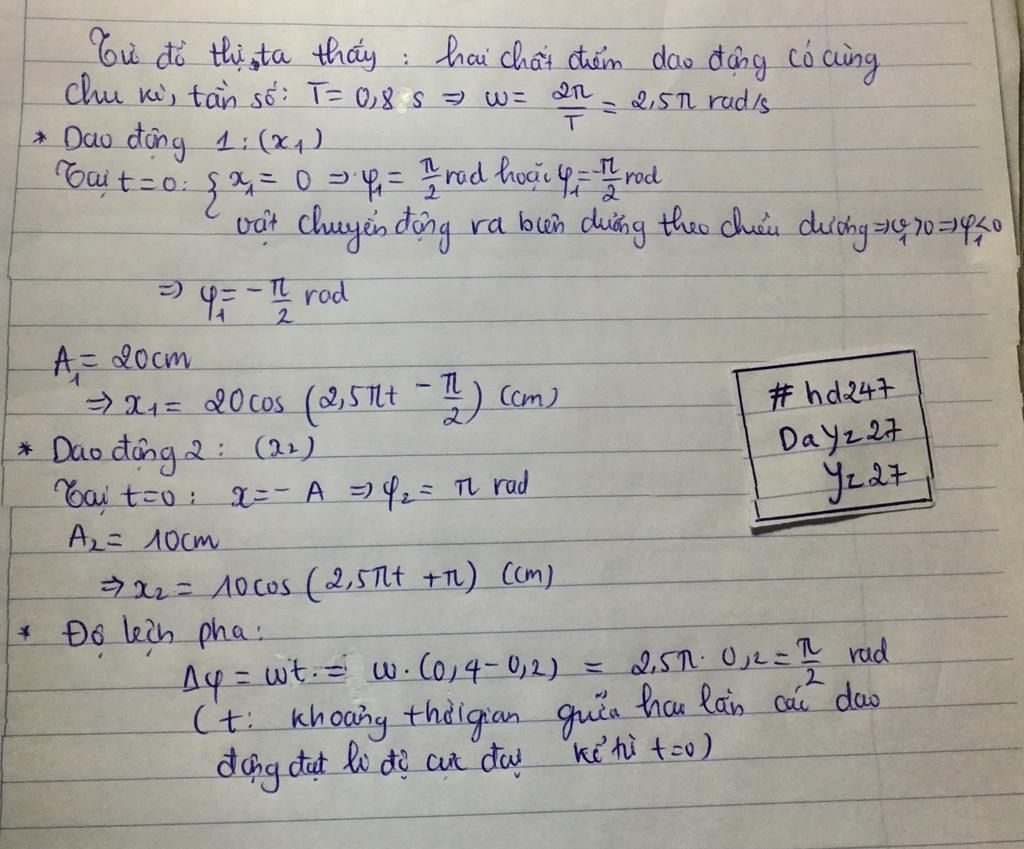 Từ đồ thị, ta thấy : hai chất điểm dao động có cùng
chu kì, tần số: T = 0,8 s => ω = 2π/T = 2,5π rad/s
* Dao động 1: (x₁)
Tại t=0: { x₁ = 0 => φ₁ = π/2 rad hoặc φ₁ = -π/2 rad
vật chuyển động ra biên dương theo chiều dương => v₁>0 => φ₁<0
=> φ₁ = - π/2 rad
A₁ = 20cm
=> x₁ = 20cos (2,5πt - π/2) (cm)
* Dao động 2 : (x₂)
Tại t=0 : x = - A => φ₂ = π rad
A₂ = 10cm
=> x₂ = 10cos (2,5πt + π) (cm)
* Độ lệch pha:
Δφ = ωt = ω.(0,4-0,2) = 2,5π. 0,2 = π/2 rad
(t: khoảng thời gian giữa hai lần các dao
động đạt li độ cực đại kể từ t=0)
# hd247
DaYz27
Yz27